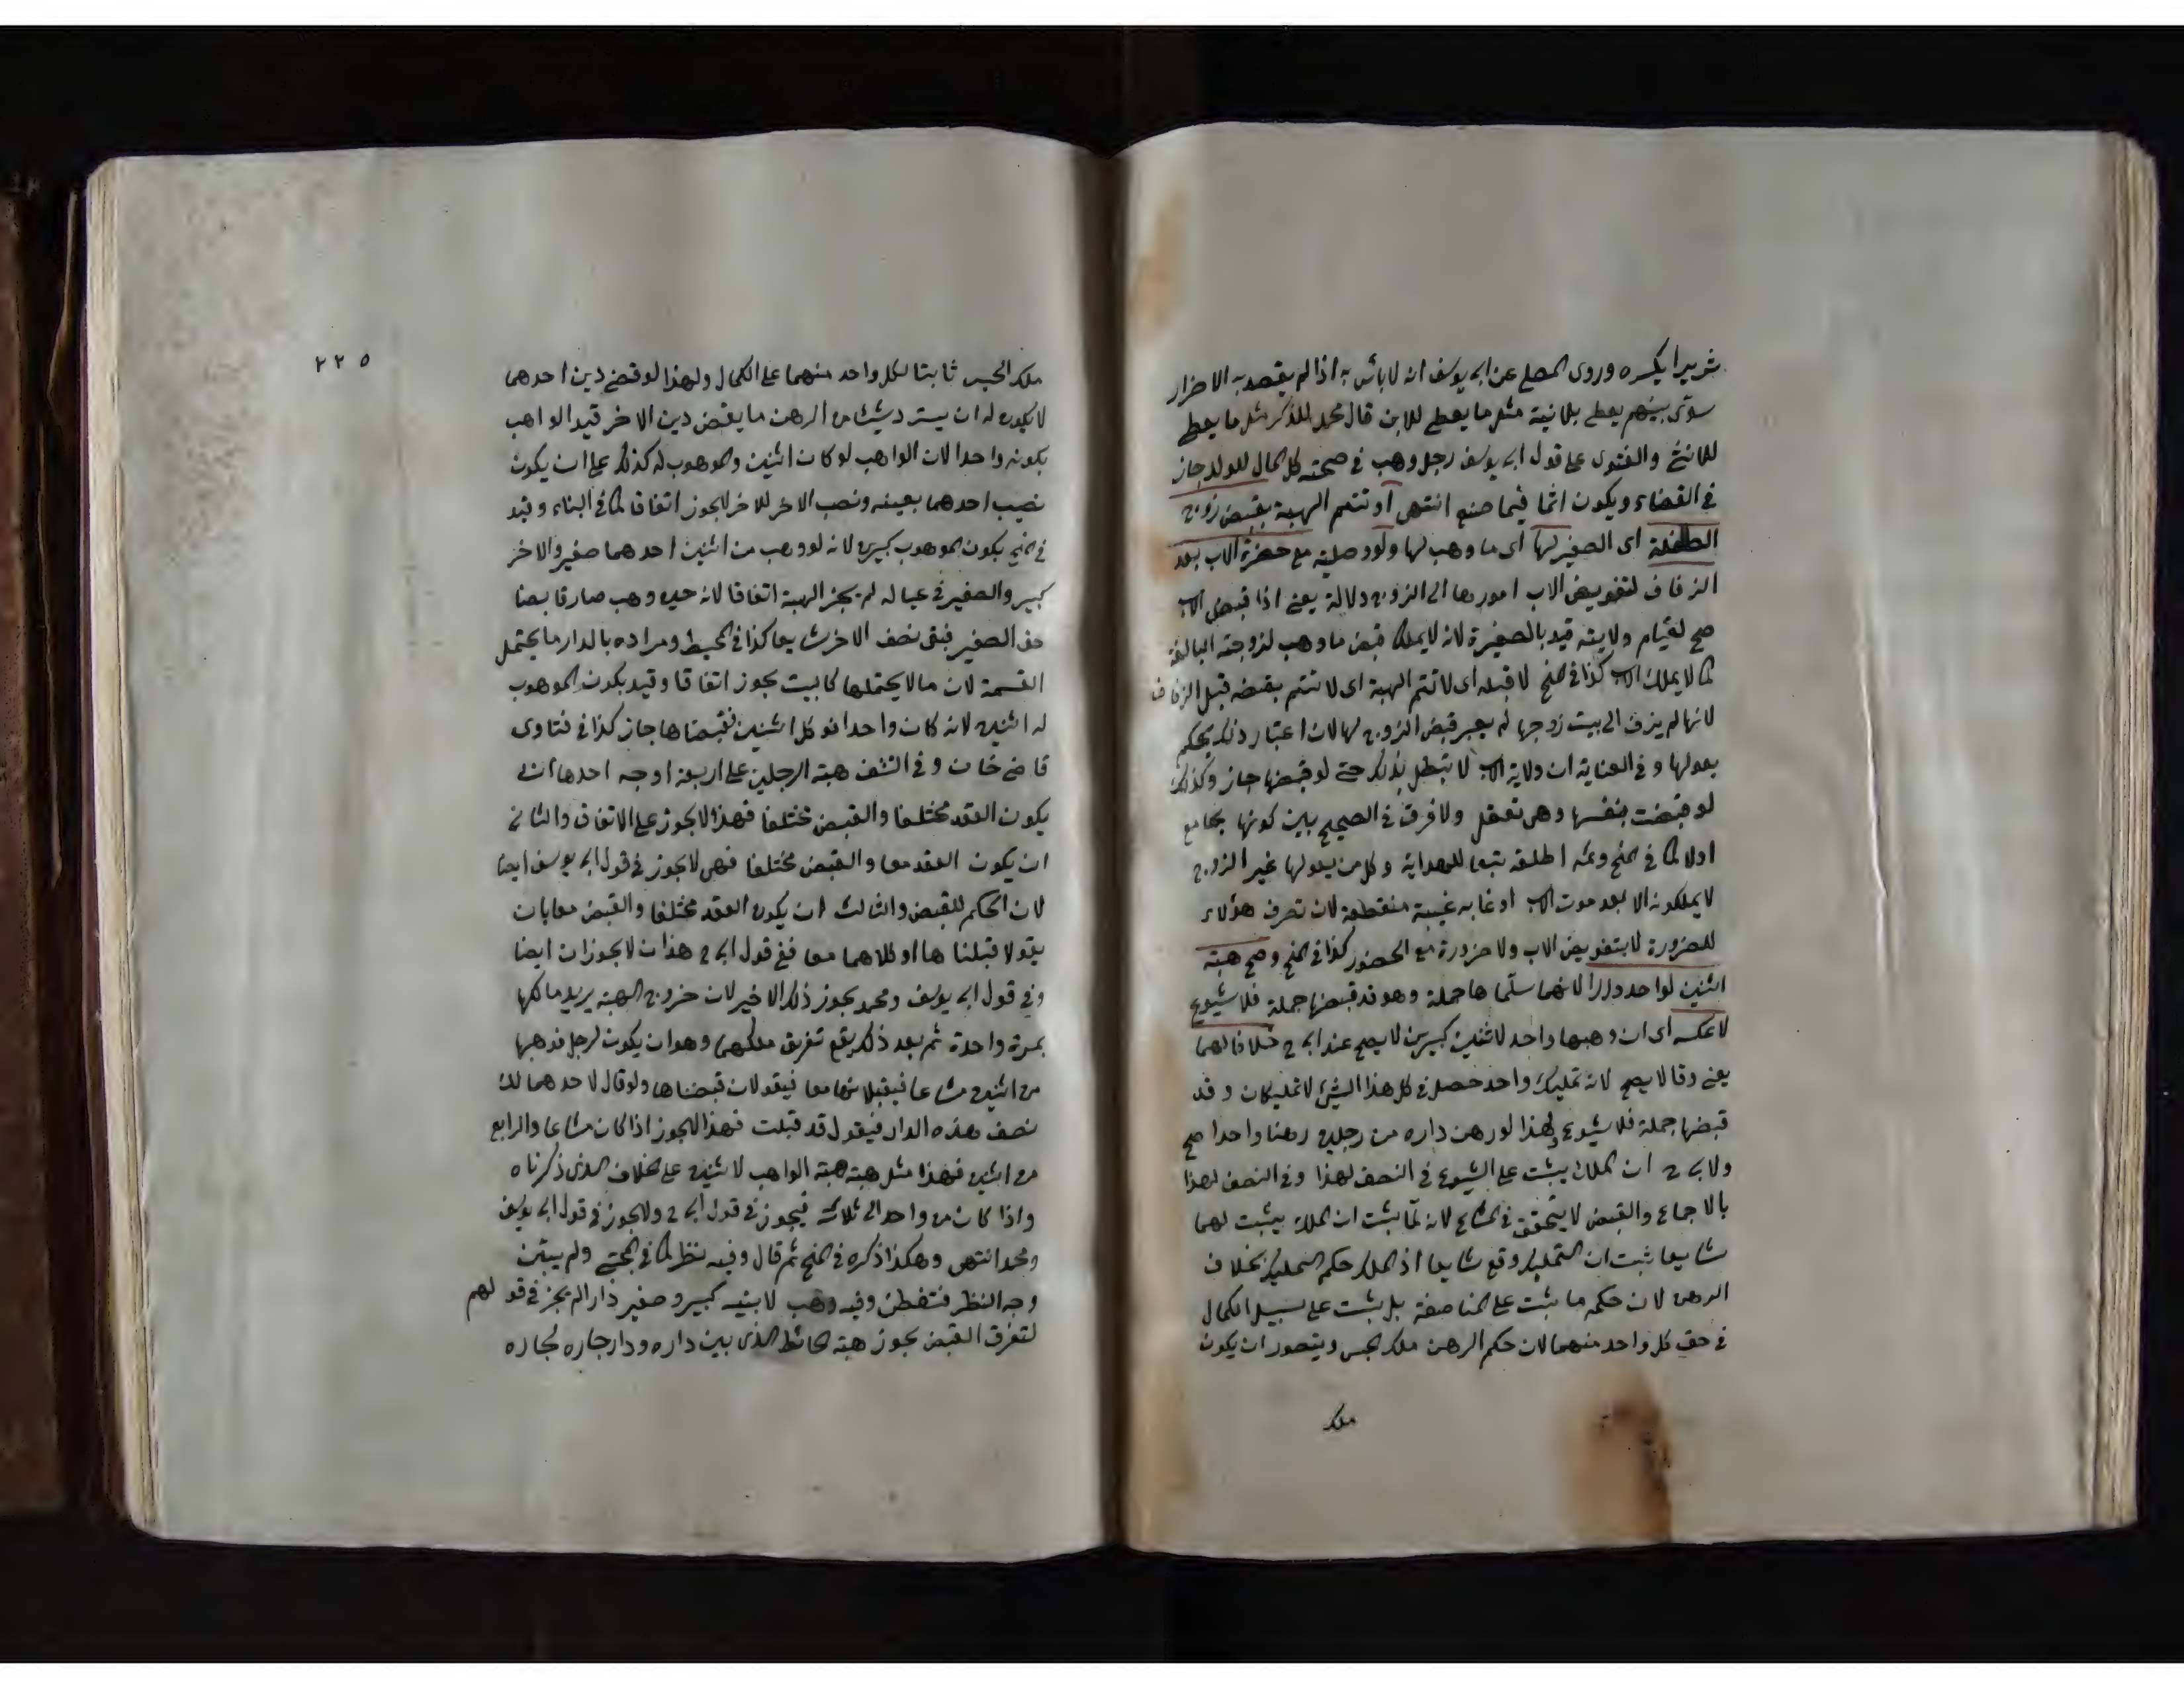 شريرا يكره وروى المعلى عن ابى يوسف انه لا بأس به اذا لم يقصد به الاضرار
سوّى بينهم يعطى بلانية مثل ما يعطى للابن قال محمد للذكر مثل ما يعطى
للانثى والفتوى على قول ابى يوسف رجل وهب فى صحته كل المال للولد جاز
فى القضاء ويكون اثما فيما صنع انتهى او تتم الهبة بقبض زوج
الطفلة اى الصغير لها اى ما وهب لها ولو وصلية مع حضرة الاب بعد
الزفاف لتفويض الاب امورها الى الزوج دلالة يعنى اذا قبض الاب
صح لقيام ولايته قيد بالصغيرة لانه لا يملك قبض ما وهب لزوجته البالغة
كما لا يملك الاب كذا فى المنح لا قبله اى لا تتم الهبة اى لا تتم بقبضه قبل الزفاف
لانها لم يزف الى بيت زوجها لم يعبر قبض الزوج لها لان اعتبار ذلك بحكم
يعولها وفى العناية ان ولاية الاب لا تبطل بذلك حتى لو قبضها جاز وكذلك
لو قبضت بنفسها وهى تعقل ولا فرق فى الصحيح بين كونها يجامع
اولا كما فى المنح وغيره اطلقه تبعا للهداية وكل من يعولها غير الزوج
لا يملكونه الا بعد موت الاب او غابه غيبة منقطعة لان تصرف هؤلاء
للضرورة لا بتفويض الاب ولا ضرورة مع الحضور كذا فى المنح وصح هبة
اثنين لواحد دارا لانهما سلّما ها جملة وهو قد قبضها جملة فلا شيوع
لا عكسه اى ان وهبها واحد لاثنين كبيرين لا يصح عند ابى ح خلافا لهما
يعنى وقالا يصح لانه تمليك واحد حصل فى كل هذا الشئ لا تمليكان وقد
قبضها جملة فلا شيوع ولهذا لو رهن داره من رجلين رهنا واحدا صح
ولابى ح ان الملك يثبت على الشيوع فى النصف لهذا وفى النصف لهذا
بالاجماع والقبض لا يتحقق فى المشاع لانه لمّا يثبت ان الملك يثبت لهما
شايعا ثبت ان التمليك وقع شايعا اذ الملك حكم التمليك بخلاف
الرهن لان حكمه ما يثبت على المناصفة بل يثبت على سبيل الكمال
فى حق كل واحد منهما لان حكم الرهن ملك الحبس ويتصور ان يكون
ملك
٢٢٥
ملك الحبس ثابتا لكل واحد منهما على الكمال ولهذا لو قضى دين احدهما
لا يكون له ان يسترد شيئا من الرهن ما يقض دين الاخر قيد الواهب
بكونه واحدا لان الواهب لو كان اثنين والموهوب له كذلك على ان يكون
نصيب احدهما بعينه ونصب الاخر للاخر لا يجوز اتفاقا كما فى البناء وقيد
فى المنح بكون الموهوب كبيرى لانه لو وهب من اثنين احدهما صغير والاخر
كبير والصغير فى عياله لم يجز الهبة اتفاقا لانه حين وهب صار قابضا
حق الصغير فبقى نصف الاخر شايعا كذا فى المحيط ومراده بالدار ما يحتمل
القسمة لان ما لا يحتملها كالبيت يجوز اتفاقا وقيد بكون الموهوب
له اثنين لانه كان واحدا فوكل اثنين فقبضاها جاز كذا فى فتاوى
قاضى خان وفى النتف هبة الرجلين على اربعة اوجه احدها ان
يكون العقد مختلفا والقبض مختلفا فهذا لا يجوز على الاتفاق والثانى
ان يكون العقد معا والقبض مختلفا فهى لا يجوز فى قول ابى يوسف ايضا
لان الحكم للقبض والثالث ان يكون العقد مختلفا والقبض معا بان
يقولا قبلنا ها او كلاهما معا ففى قول ابى ح هذان لا يجوزان ايضا
وفى قول ابى يوسف ومحمد يجوز ذلك الاخير لان خروج الهبة يريد مالكها
بمرة واحدة ثم بعد ذلك يقع تفريق ملكهما وهو ان يكون لرجل فوهبها
من اثنين مشاعا فيقبلانها معا فيقولان قبضناها ولو قال لاحدهما لك
نصف هذه الدار فيقول قد قبلت فهذا لا يجوز اذا كان مشاعا والرابع
من اثنين فهذا مثل هبة هبة الواهب لاثنين على الخلاف الذى ذكرناه
واذا كان من واحد الى ثلاثة فيجوز فى قول ابى ح ولا يجوز فى قول ابى يوسف
ومحمد انتهى وهكذا ذكره فى المنح ثم قال وفيه نظر كما فى المجتبى ولم يبيّن
وجه النظر فتفطن وفيه وهب لابنيه كبير وصغير دارا لم يجز فى قولهم
لتفرق القبض يجوز هبة الحائط الذى بين داره ودار جاره لجاره